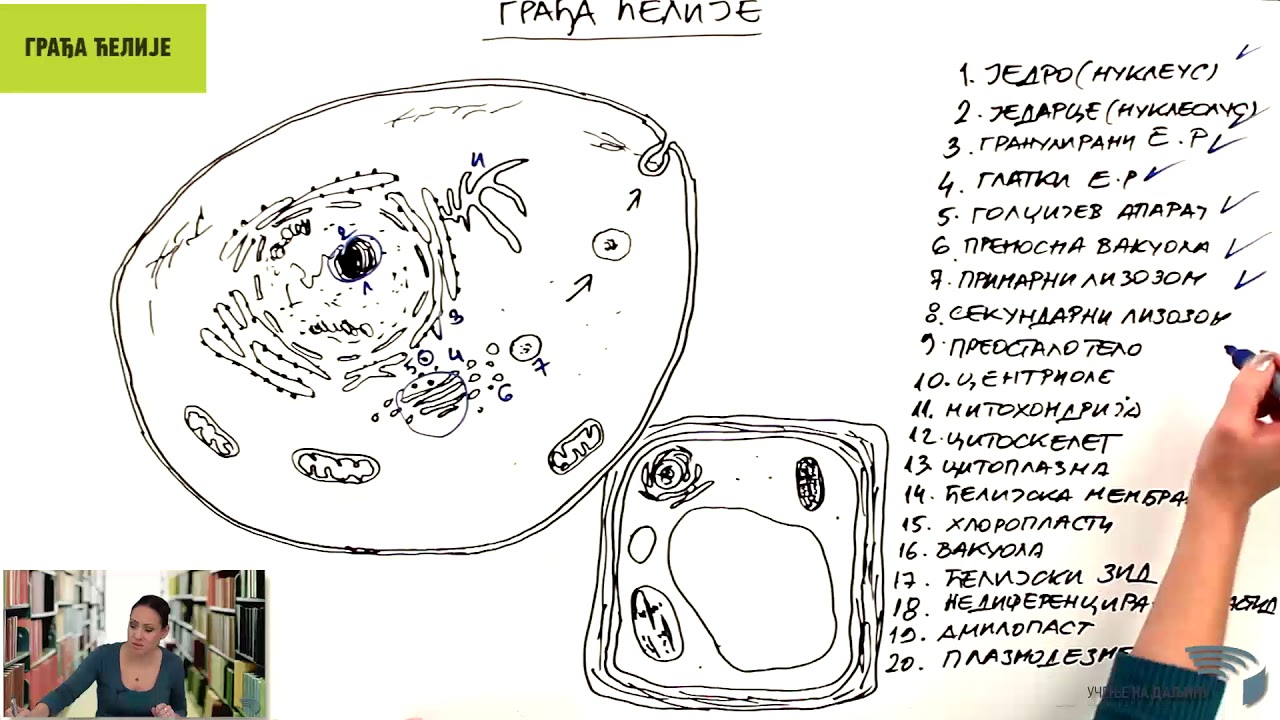 ГРАЂА ЋЕЛИЈЕ
ГРАЂА ЋЕЛИЈЕ
1. ЈЕДРО (НУКЛЕУС)
2. ЈЕДАРЦЕ (НУКЛЕОЛУС)
3. ГРАНУЛИРАНИ Е.Р
4. ГЛАТКИ Е.Р
5. ГОЛЦИЈЕВ АПАРАТ
6. ПРЕНОСНА ВАКУОЛА
7. ПРИМАРНИ ЛИЗОЗОМ
8. СЕКУНДАРНИ ЛИЗОЗОМ
9. ПРЕОСТАЛО ТЕЛО
10. ЦЕНТРИОЛЕ
11. МИТОХОНДРИЈА
12. ЦИТОСКЕЛЕТ
13. ЦИТОПЛАЗМА
14. ЋЕЛИЈСКА МЕМБРА
15. ХЛОРОПЛАСТИ
16. ВАКУОЛА
17. ЋЕЛИЈСКИ ЗИД
18. НЕДИФЕРЕНЦИРА
19. АМИЛОПАСТ
20. ПЛАЗМОДЕЗМЕ
2
1
3
4
5
6
7
УЧЕЊЕ НА ДАЉИНУ